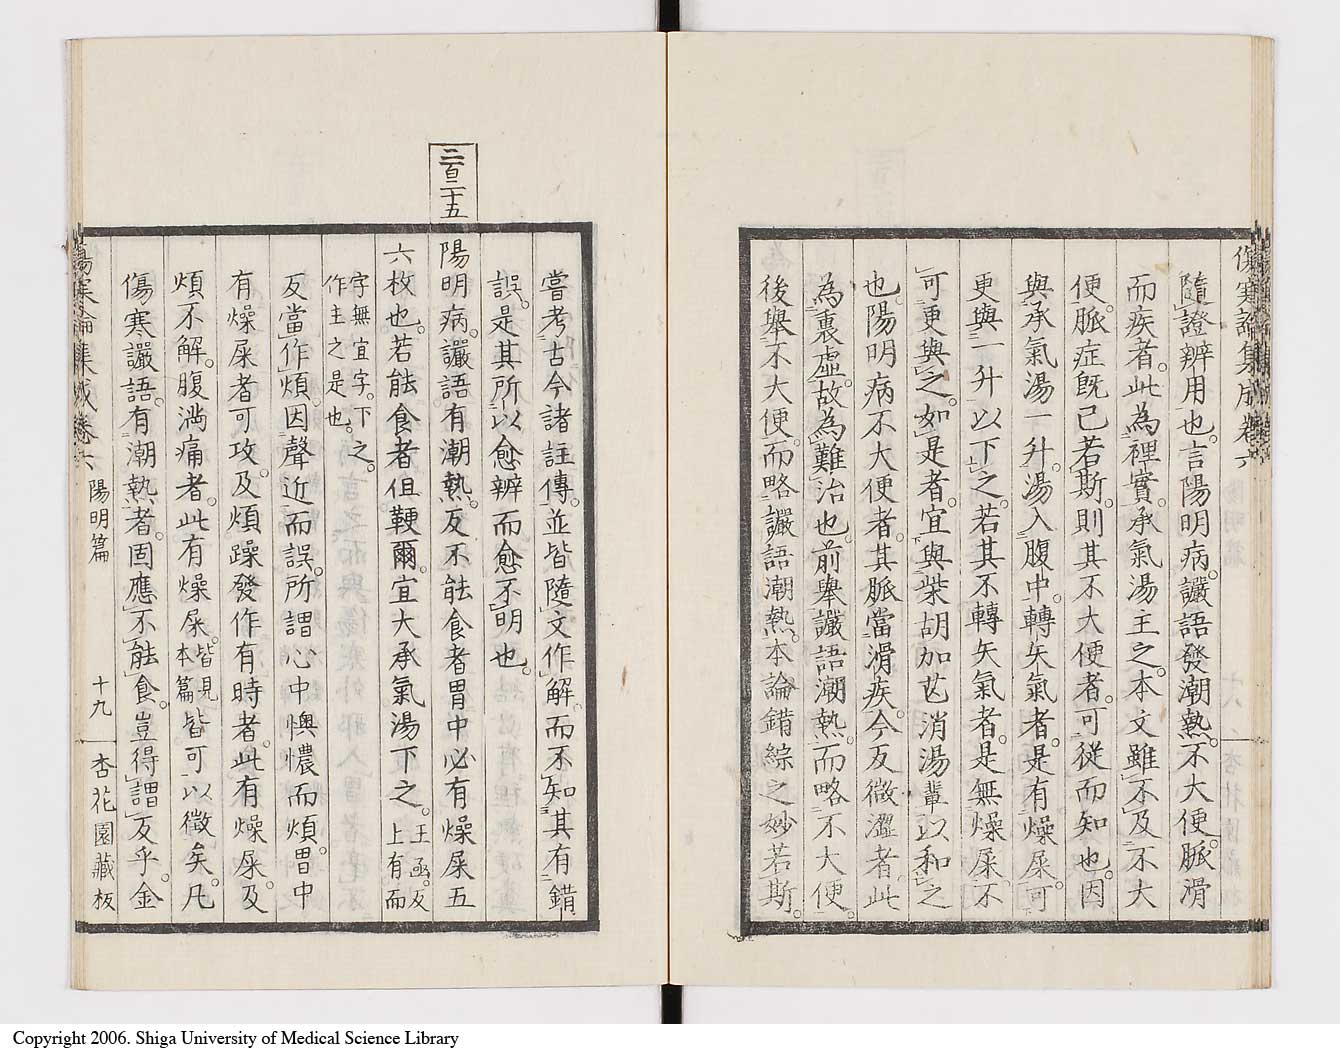 傷寒論集成卷六
隨證辨用也。言陽明病。讝語發潮熱。不大便。脈滑
而疾者。此為裡實。承氣湯主之。本文雖不及不大
便。脈症既已若斯。則其不大便者。可從而知也。因
與承氣湯一升。湯入腹中。轉矢氣者。是有燥屎。可
更與一升以下之。若其不轉矢氣者。是無燥屎。不
可更與之。如是者。宜與柴胡加芒消湯輩以和之
也。陽明病不大便者。其脈當滑疾。今反微澀者。此
為裏虛。故為難治也。前舉讝語潮熱。而略不大便。
後舉不大便。而略讝語潮熱。本論錯綜之妙若斯。
嘗考古今諸註傳。並皆隨文作解。而不知其有錯
誤。是其所以愈辨而愈不明也。
二百二十五
陽明病。讝語有潮熱。反不能食者。胃中必有燥屎五
六枚也。若能食者。但鞕爾。宜大承氣湯下之。王函。反上有而
字。無宜字。下之。作主之。是也。
反當作煩。因聲近而誤。所謂心中懊憹而煩。胃中
有燥屎者可攻。及煩躁發作有時者。此有燥屎。及
煩不解。腹滿痛者。此有燥屎。皆見本篇皆可以徵矣。凡
傷寒讝語。有潮熱者。固應不能食。豈得謂反乎。金
傷寒論集成卷六 陽明篇 十九 杏花園藏板